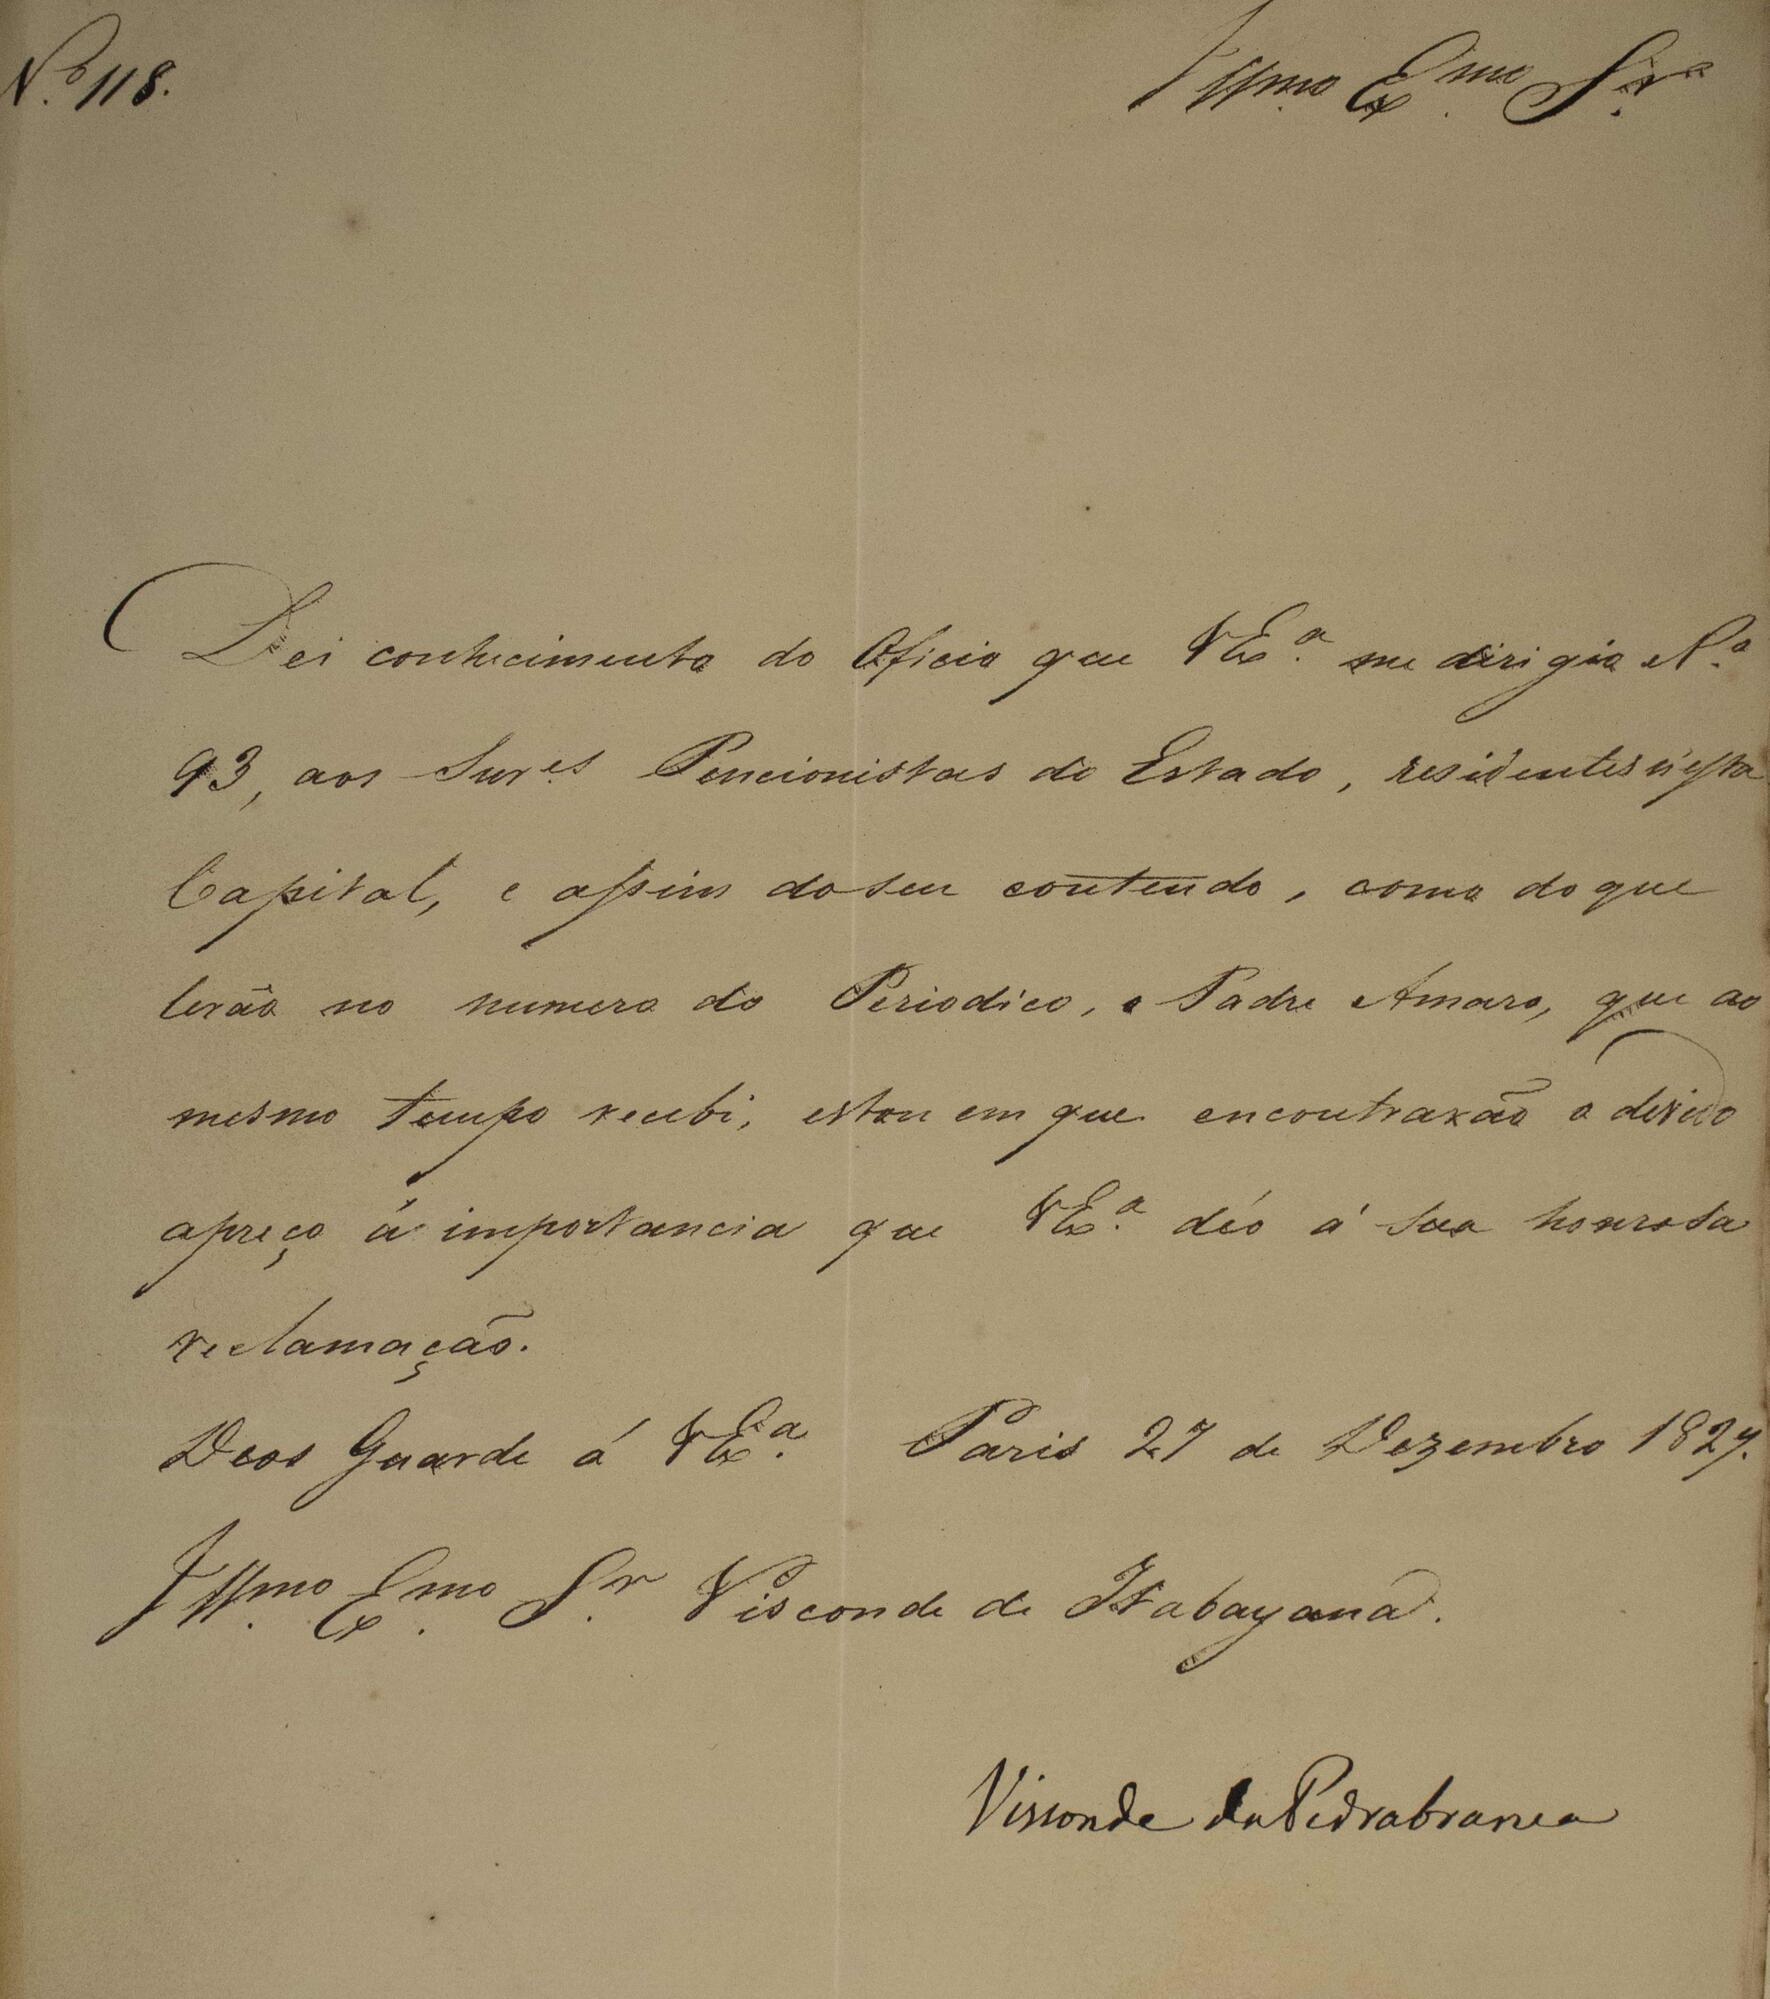 N.º 118.
Illmo Exmo Sr
Dei conhecimento do Officio que VEx.ª me dirigio N.º
93, aos Snres Pencionistas do Estado, residentes n'esta
Capital, e assim do seu contendo, como do que
lerão no numero do Periodico, o Padre Amaro, que ao
mesmo tempo recebi, estou em que encontrarão o devido
apreço á importancia que VEx.ª déo á sua honrosa
reclamação.
Deos Guarde á VEx.ª Paris 27 de Dezembro 1827.
Illmo Exmo Sr Visconde de Itabayana.
Visconde da Pedrabranca